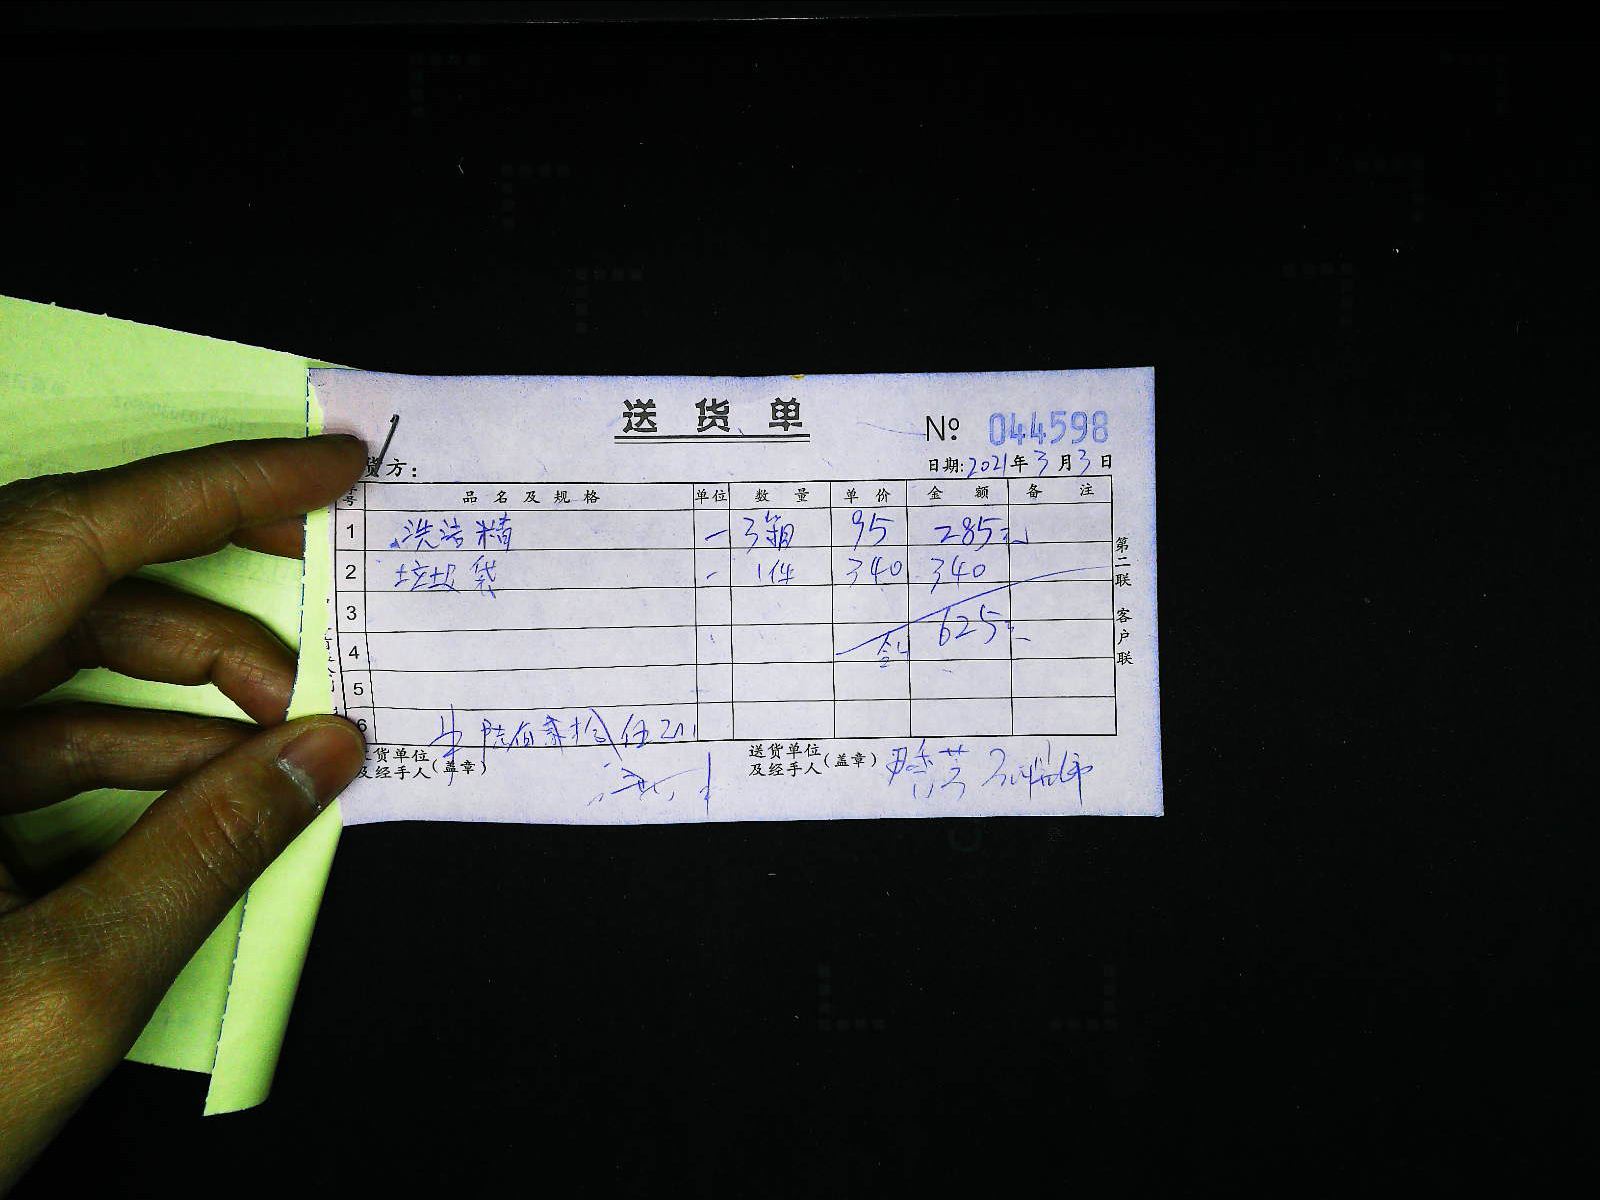 送货单
№ 044598
货方：
日期:2021年3月3日
号 品名及规格 单位 数量 单价 金额 备注
1 洗洁精 一 3箱 95 285元
2 垃圾袋 - 1件 340 340
3
4 合计 625元
5
6 陆佰贰拾伍元
货单位及经手人(盖章)
送货单位及经手人(盖章)
第二联 客户联